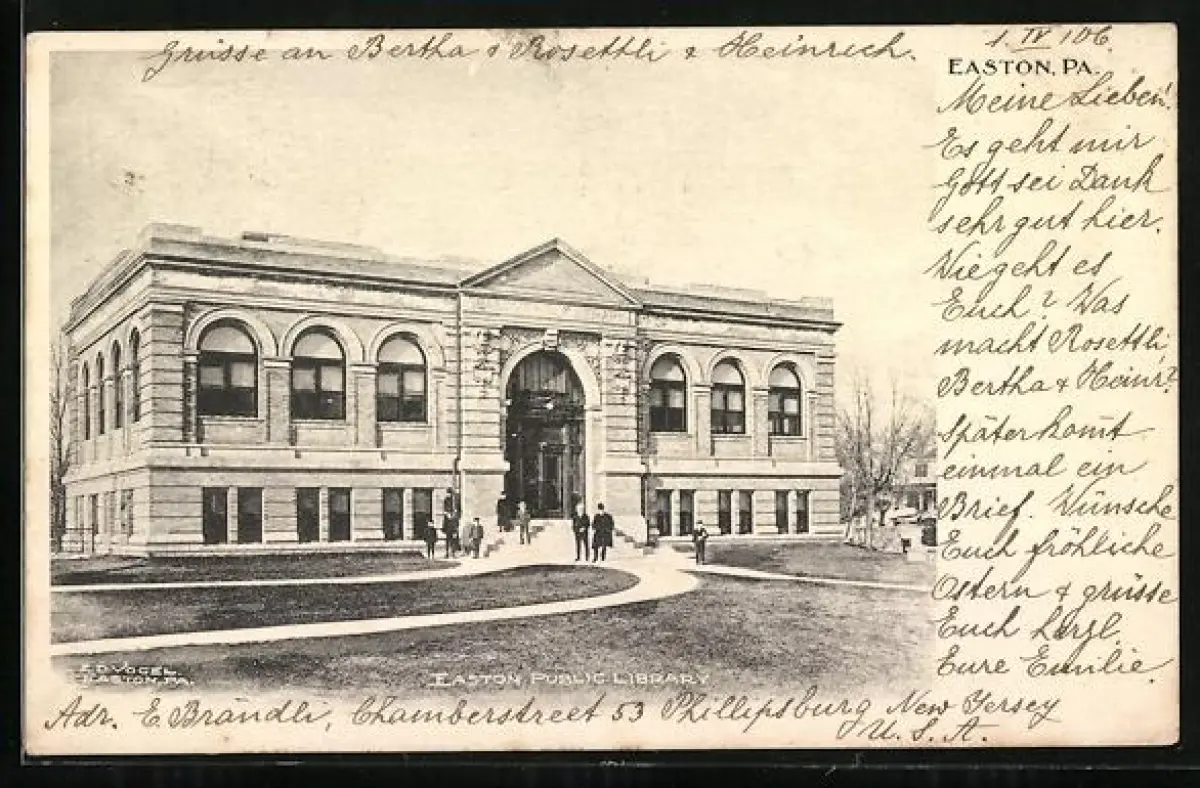 Grüsse an Bertha & Rosettli & Heinrich.
1. IV 106.
EASTON, PA.
Meine Lieben!
Es geht mir
Gott sei Dank
sehr gut hier.
Wie geht es
Euch? Was
macht Rosettli,
Bertha & Heinr?
Später kom̄t
einmal ein
Brief. Wünsche
Euch fröhliche
Ostern & grüsse
Euch herzl.
Eure Emilie.
E.D. VOGEL,
EASTON, PA.
EASTON PUBLIC LIBRARY
Adr. E. Brändli, Chamberstreet 53 Phillipsburg New Jersey
U. S. A.